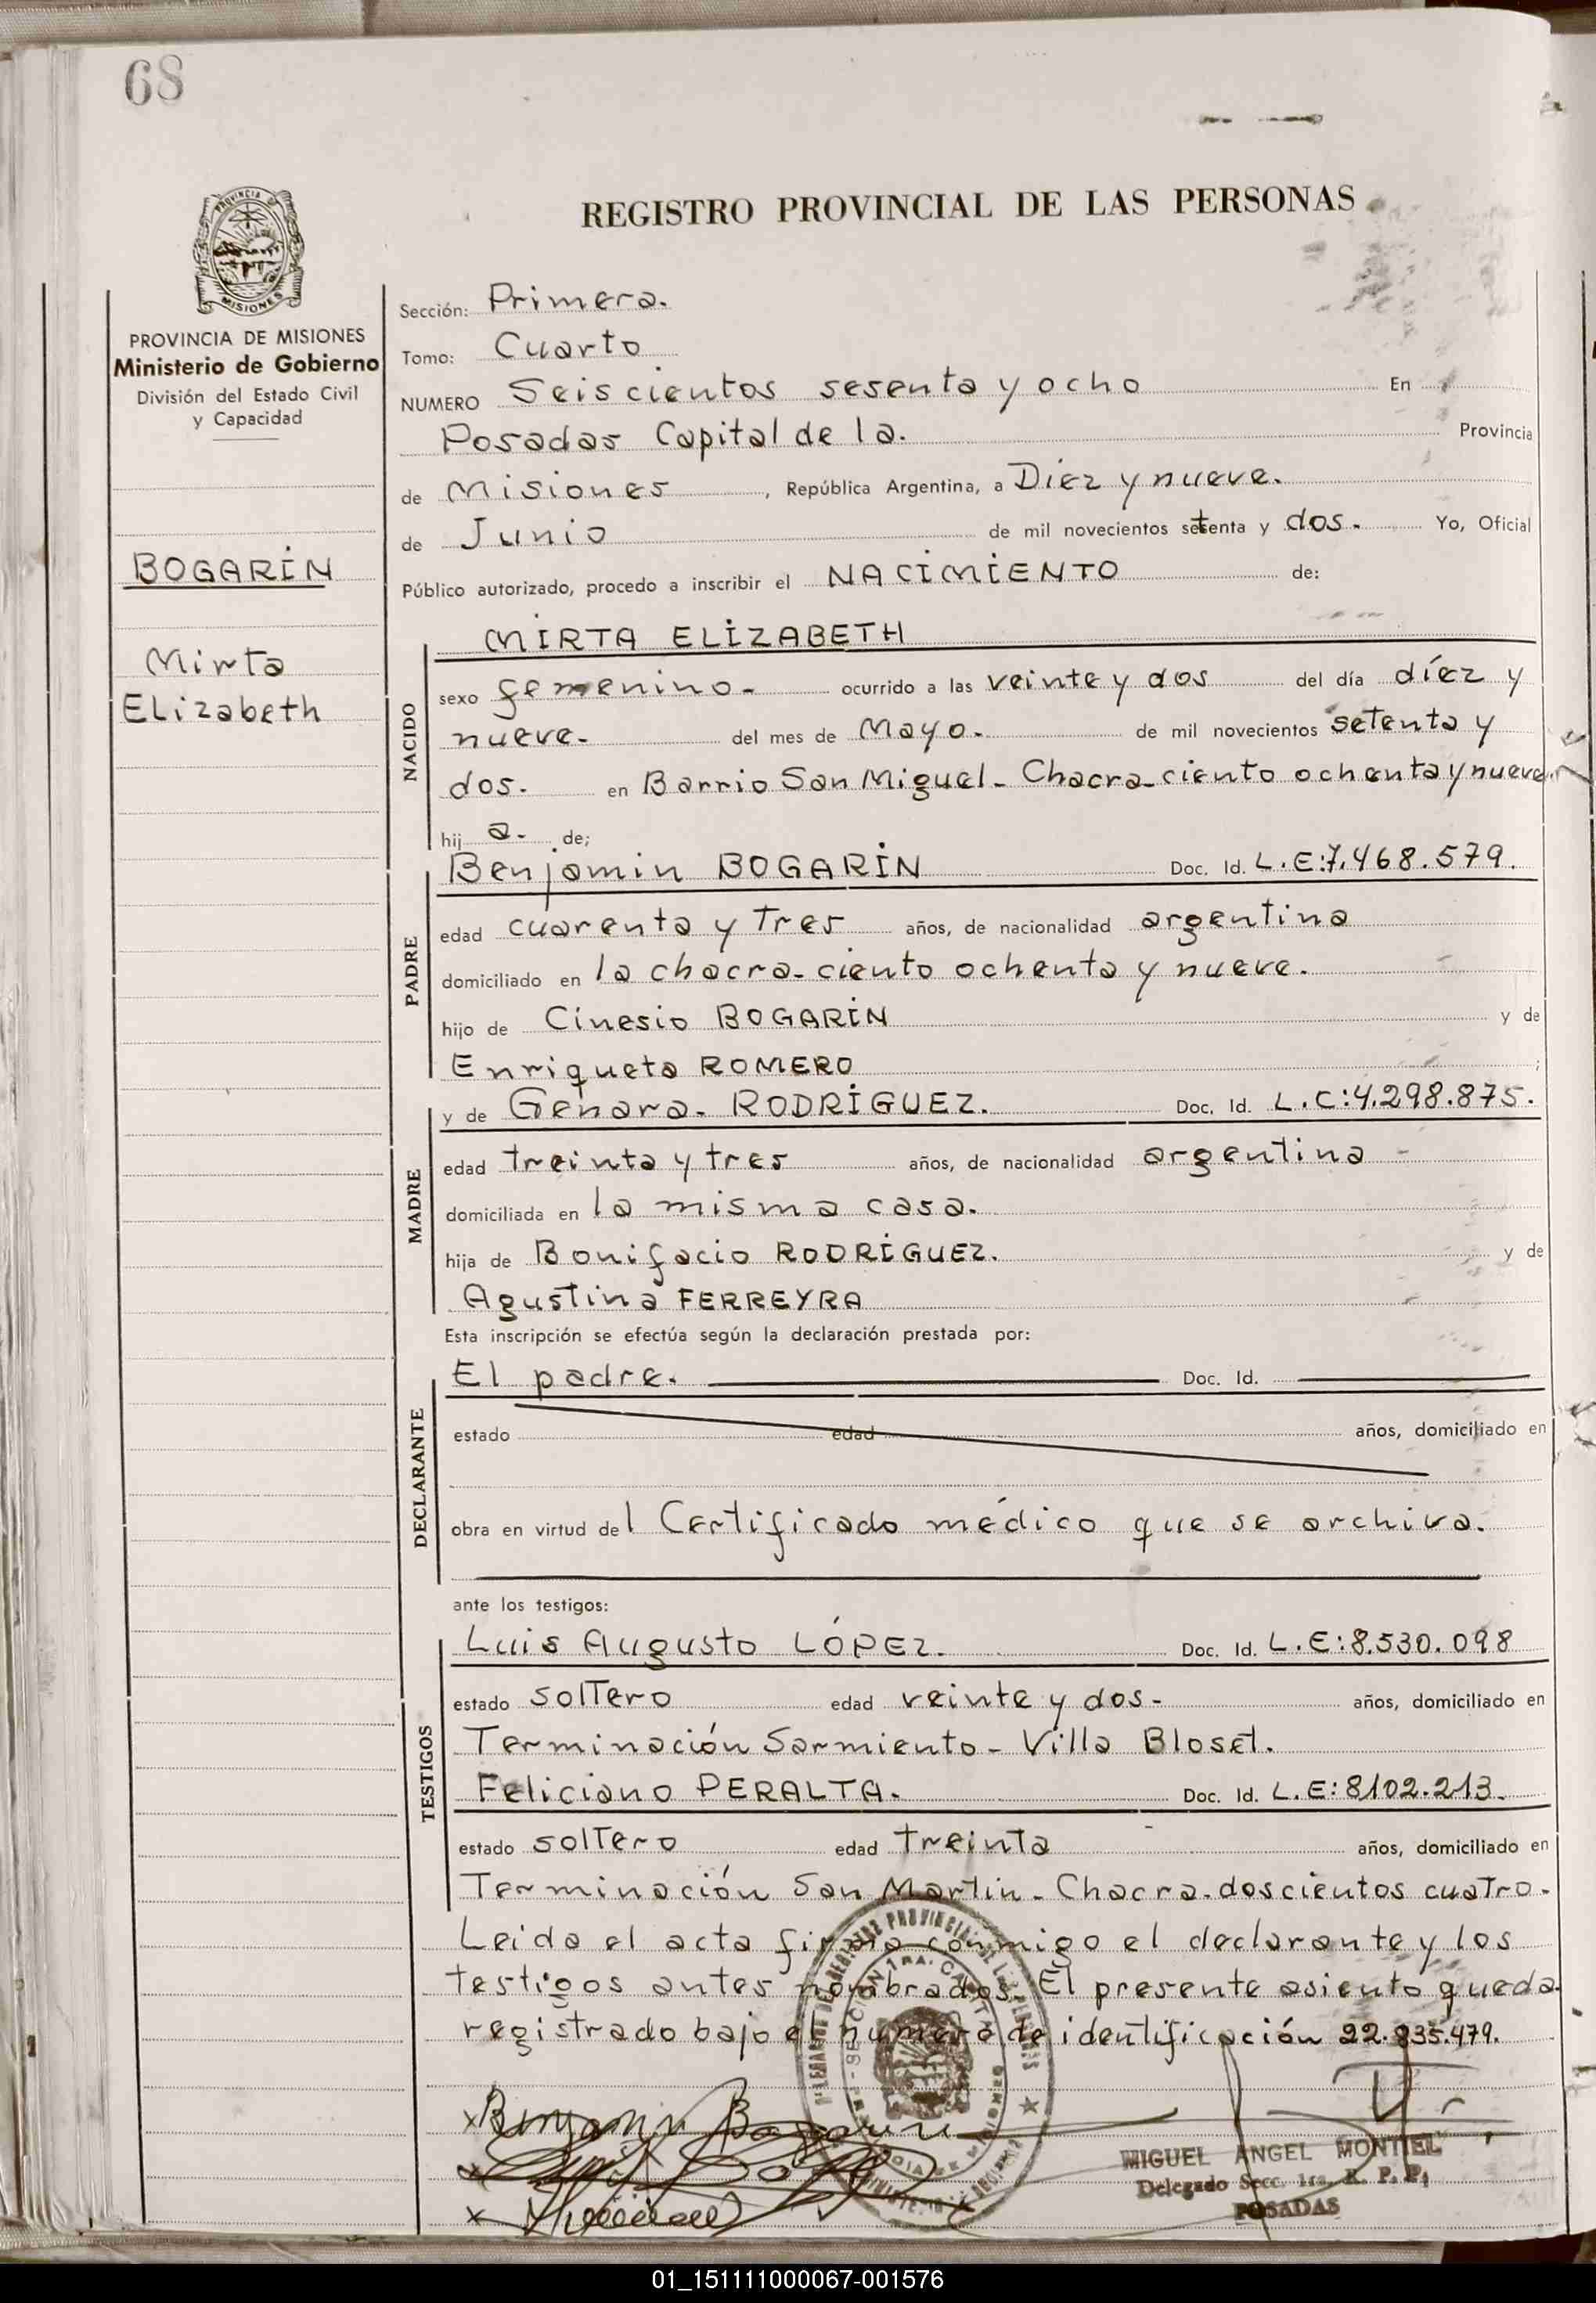 68
REGISTRO PROVINCIAL DE LAS PERSONAS
PROVINCIA
MISIONES
PROVINCIA DE MISIONES
Ministerio de Gobierno
División del Estado Civil
y Capacidad
BOGARÍN
Mirta
Elizabeth
Sección: Primera.
Tomo: Cuarto
NUMERO Seiscientos sesenta y ocho En
Posadas Capital de la. Provincia
de Misiones, República Argentina, a Diez y nueve.
de Junio de mil novecientos setenta y dos. Yo, Oficial
Público autorizado, procedo a inscribir el NACIMIENTO de:
NACIDO
MIRTA ELIZABETH
sexo femenino. ocurrido a las veinte y dos del día díez y
nueve. del mes de Mayo. de mil novecientos setenta y
dos. en Barrio San Miguel - Chacra ciento ochenta y nueve.
hij a. de;
PADRE
Benjamin BOGARÍN Doc. Id. L.E:7.468.579.
edad cuarenta y tres años, de nacionalidad argentina
domiciliado en la chacra ciento ochenta y nueve.
hijo de Cinesio BOGARÍN y de
Enriqueta ROMERO ;
MADRE
y de Genara. RODRÍGUEZ. Doc. Id. L.C:4.298.875.
edad treinta y tres años, de nacionalidad argentina
domiciliada en la misma casa.
hija de Bonifacio RODRÍGUEZ. y de
Agustina FERREYRA
Esta inscripción se efectúa según la declaración prestada por:
DECLARANTE
El padre. Doc. Id.
estado edad años, domiciliado en
obra en virtud del Certificado médico que se archiva.
ante los testigos:
TESTIGOS
Luis Augusto LÓPEZ. Doc. Id. L.E:8.530.098
estado soltero edad veinte y dos - años, domiciliado en
Terminación Sarmiento - Villa Bloset.
Feliciano PERALTA. Doc. Id. L.E:8102.213.
estado soltero edad treinta años, domiciliado en
Terminación San Martin - Chacra doscientos cuatro.
Leida el acta firma conmigo el declarante y los
testigos antes nombrados. El presente asiento queda
registrado bajo el numero de identificación 22.835.479.
x Benjamin Bogarin
x
x
MIGUEL ANGEL MONTIEL
Delegado Secc. 1ra. R. P. P.
POSADAS
01_151111000067-001576